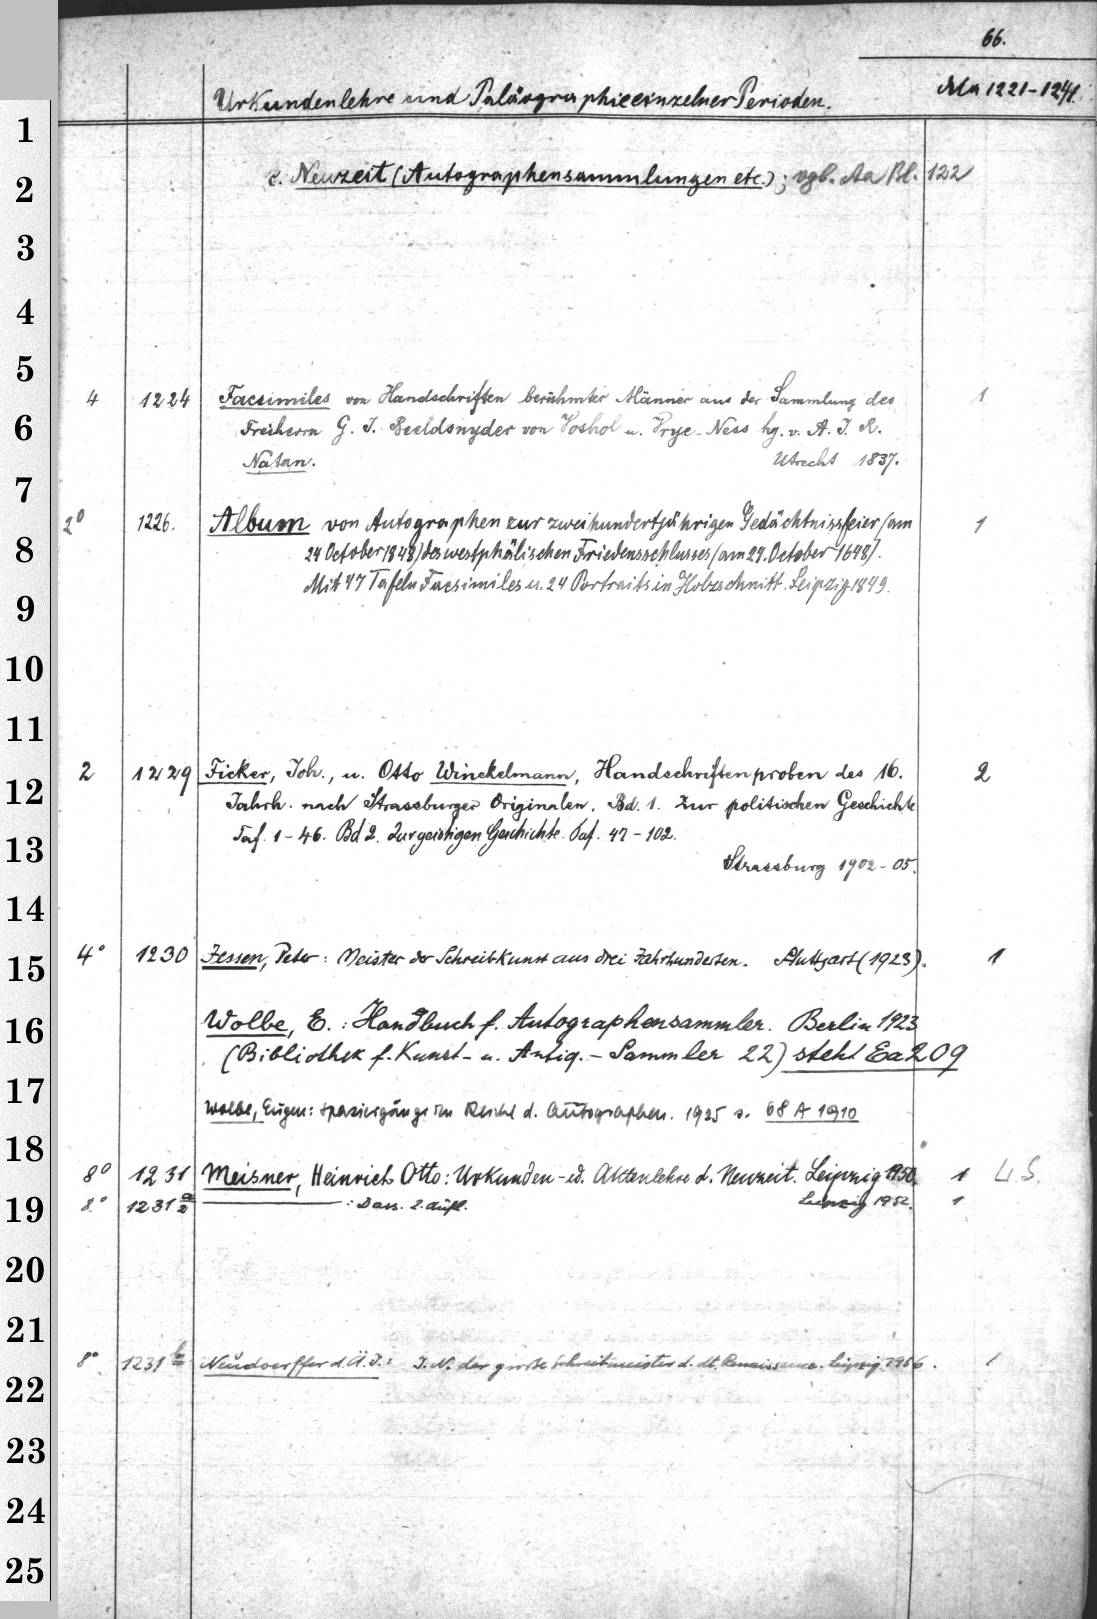 66.
Urkundenlehre und Paläographie einzelner Perioden. Ma 1221-1241.
c. Neuzeit (Autographensammlungen etc.); vgl. Aa Bl. 122
4 1224 Facsimiles von Handschriften berühmter Männer aus der Sammlung des 1
Freiherrn G. J. Beeldsnyder von Voshol u. Vrye-Ness hg. v. A. J. R.
Natan. Utrecht 1837.
2° 1226. Album von Autographen zur zweihundertjährigen Gedächtnissfeier (am 1
24 October 1848) des westphälischen Friedensschlusses (am 24. October 1648).
Mit 47 Tafeln Facsimiles u. 24 Portraits in Holzschnitt. Leipzig 1849.
2 1229 Ficker, Joh., u. Otto Winckelmann, Handschriftenproben des 16. 2
Jahrh. nach Strassburger Originalen. Bd. 1. Zur politischen Geschichte
Taf. 1-46. Bd 2. Zur geistigen Geschichte. Taf. 47-102.
Strassburg 1902-05.
4° 1230 Jessen, Peter: Meister der Schreibkunst aus drei Jahrhunderten. Stuttgart (1923). 1
Wolbe, E.: Handbuch f. Autographensammler. Berlin 1923
(Bibliothek f. Kunst- u. Antiq.-Sammler 22) steht Ea 209
Wolbe, Eugen: Spaziergänge im Reiche d. Autographen. 1925 s. 68 A 1910
8° 1231 Meisner, Heinrich Otto: Urkunden- u. Aktenlehre d. Neuzeit. Leipzig 1950. 1 LS.
8° 1231 a/2 : Dass. 2. Aufl. Leipzig 1952. 1
8° 1231 b Neudoerffer d. Ä. J.: J. N. der große Schreibmeister d. dt. Renaissance. Leipzig 1956. 1
1
2
3
4
5
6
7
8
9
10
11
12
13
14
15
16
17
18
19
20
21
22
23
24
25